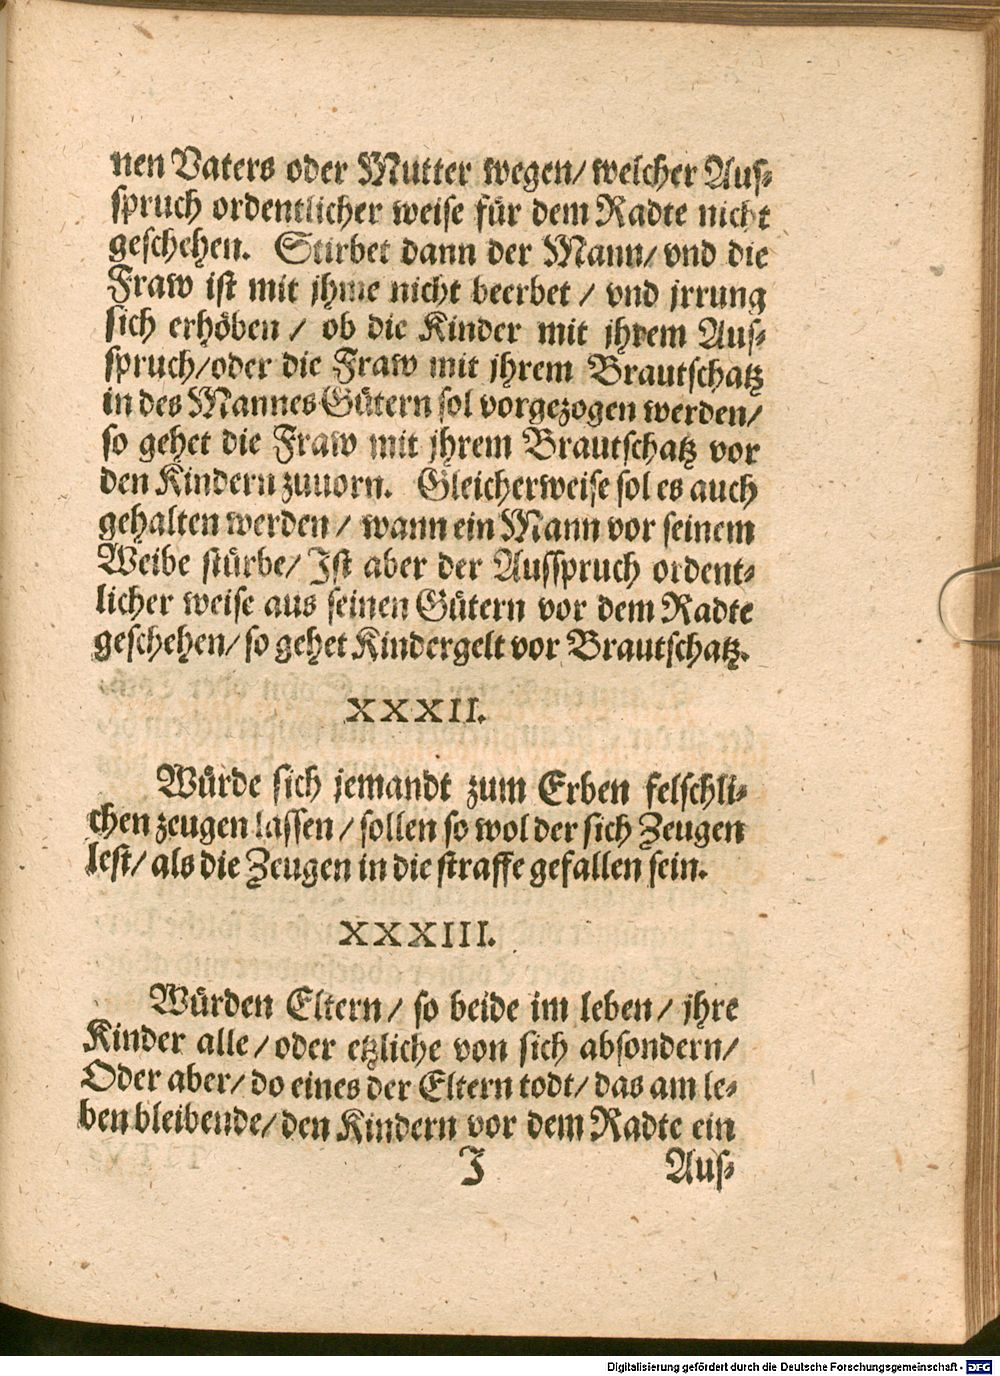 nen Vaters oder Mutter wegen/ welcher Aus⸗
spruch ordentlicher weise für dem Radte nicht
geschehen. Stirbet dann der Mann/ vnd die
Fraw ist mit jhme nicht beerbet / vnd jrrung
sich erhöben / ob die Kinder mit jhrem Aus⸗
spruch/oder die Fraw mit jhrem Brautschatz
in des Mannes Gütern sol vorgezogen werden/
so gehet die Fraw mit jhrem Brautschatz vor
den Kindern zuuorn. Gleicherweise sol es auch
gehalten werden / wann ein Mann vor seinem
Weibe stürbe/ Ist aber der Ausspruch ordent⸗
licher weise aus seinen Gütern vor dem Radte
geschehen/ so gehet Kindergelt vor Brautschatz.
XXXII.
Würde sich jemandt zum Erben felschli⸗
chen zeugen lassen / sollen so wol der sich Zeugen
lest/ als die Zeugen in die straffe gefallen sein.
XXXIII.
Würden Eltern / so beide im leben / jhre
Kinder alle / oder etzliche von sich absondern/
Oder aber/ do eines der Eltern todt/ das am le⸗
ben bleibende/ den Kindern vor dem Radte ein
J Aus⸗
Digitalisierung gefördert durch die Deutsche Forschungsgemeinschaft - DFG